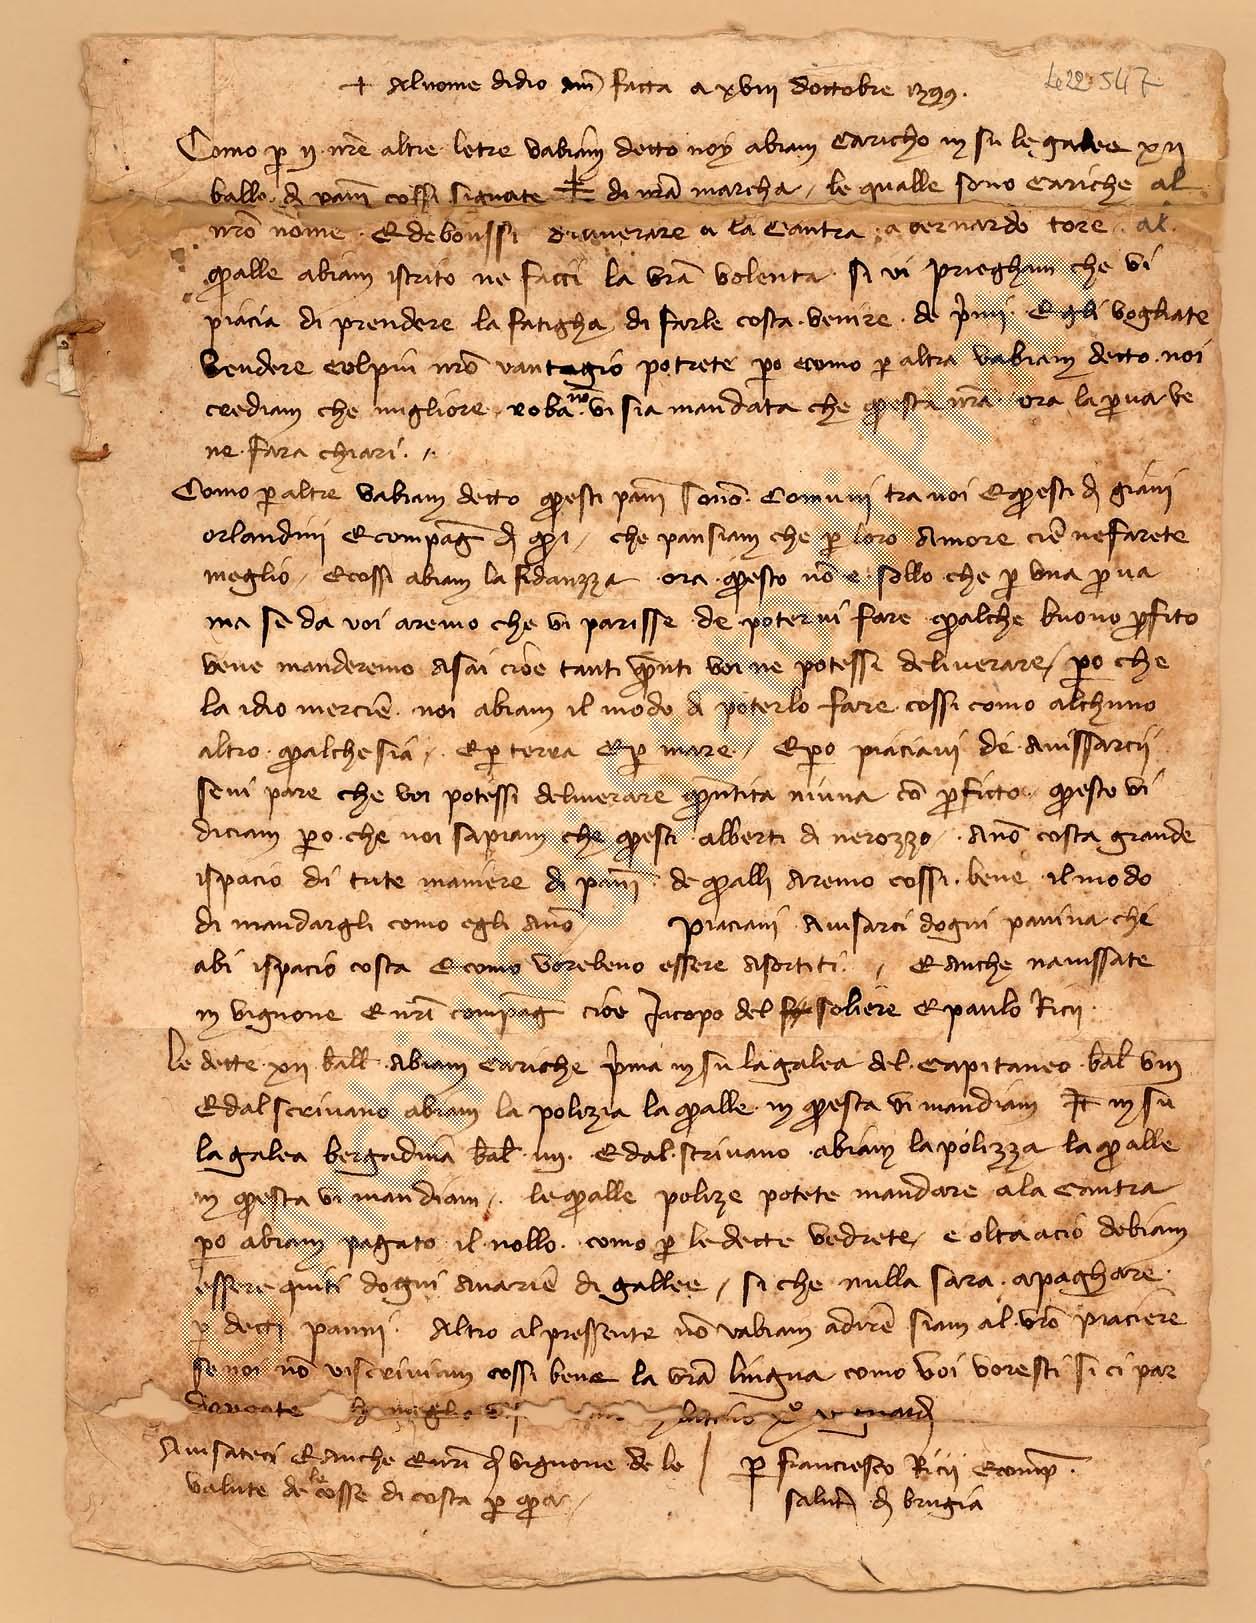 + Al nome di dio am̄ fatta a xviii d'ottobre 1399.
Como p̄ ij nr̄e altre letre vabiam detto noy abiam Caricho in su le galee xij
balle di pani cossi signate di nr̄a marcha / le qualle sono Cariche al
nr̄o nome · E debonssi diliverare a la Cantra a bernardo tore · al
qualle abiam iscrito ne facci la vr̄a volenta · si vi prieghiam che vi
piacia di prendere la fatigha di farle costa · venire · de E gli vogliate
vendere col piu nr̄o vantagio potrete p̄o como p̄ altra vabiam detto noi
crediam che migliore roba no vi sia mandata che questa nr̄a ora la p̄va ve
ne fara chiari · /.
Como p̄ altre vabiam detto questi pani sono · Comuni tra noi E questi di giani
orlandini E compag di qui / che pansiam che p̄ loro Amore cie ne farete
meglio / E cossi abiam la fidanzza ora questo no e sollo che p̄ una p̄va
ma se da voi aremo che vi parisse de potervi fare qualche buono p̄fito
vene manderemo Asai cioe tanti quanti voi ne potessi deliverare / p̄o che
la idio mercie noi abiam il modo di poterlo fare cossi como alchuno
altro qualche sia / E p̄ terra E p̄ mare / E p̄o piaciavi de Avissarcii
se vi pare che voi potessi deliverare quantita niuna co p̄fitto questo vi
diciam p̄o che noi sapiam che questi alberti di nerozzo / Ano costa grande
ispacio di tute maniere di pani de qualli Aremo cossi bene il modo
di mandargli como egli Ano / Piaciavi Avisarci dogni panina che
abi ispacio costa E como vorebeno essere Asortiti · / E Anche navissate
in vignone E nr̄i compag cioe Jacopo del soliere E paulo Ricii
Le dette xii ball Abiam Cariche p̄ma in su la galea del Capitaneo bal viii
E dal scrivano abiam la polizia la qualle in questa vi mandiam in su
la galea bergadina bal iiii · E dal scrivano abiam la polizza la qualle
in questa vi mandiam / le qualle polize potete mandare a la Cantra
p̄o abiam pagato il nollo · como p̄ le dette vedrete / e olta acio debiam
essere quiti dogni Avarie di gallee / si che nulla sara apaghare
p̄ detti panni · Altro al pressente no vabiam a dire siam al vr̄o piaciere
se noi no viscriviam cossi bene la vr̄a lingua como voi voresti si ci par
donate meglio
Avisateci E Anche E nr̄i di vignone de le / p̄ franciesco Ricii E comp ·
valute de le cosse di costa p̄ qua / salut di brugia